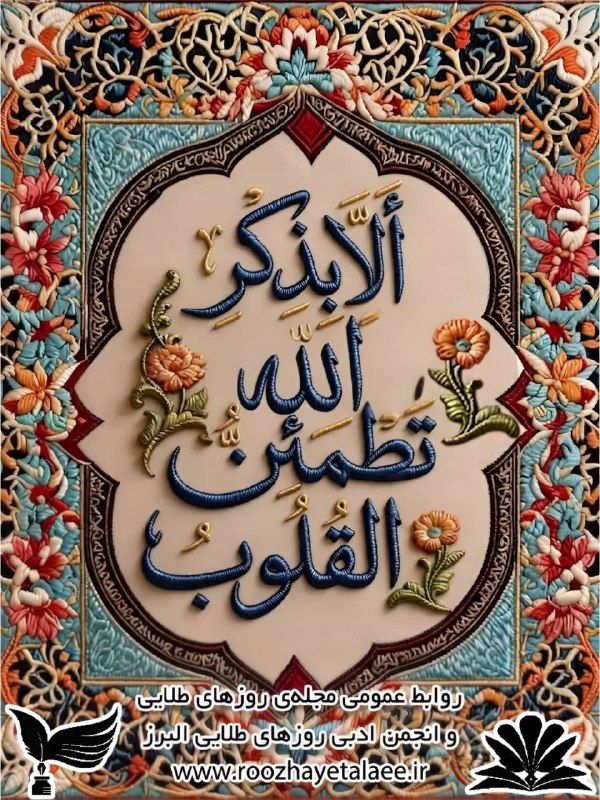 أَلَا بِذِكْرِ
اللَّهِ
تَطْمَئِنُّ
الْقُلُوبُ
روابط عمومی مجله‌ی روزهای طلایی
و انجمن ادبی روزهای طلایی البرز
www.roozhayetalaee.ir